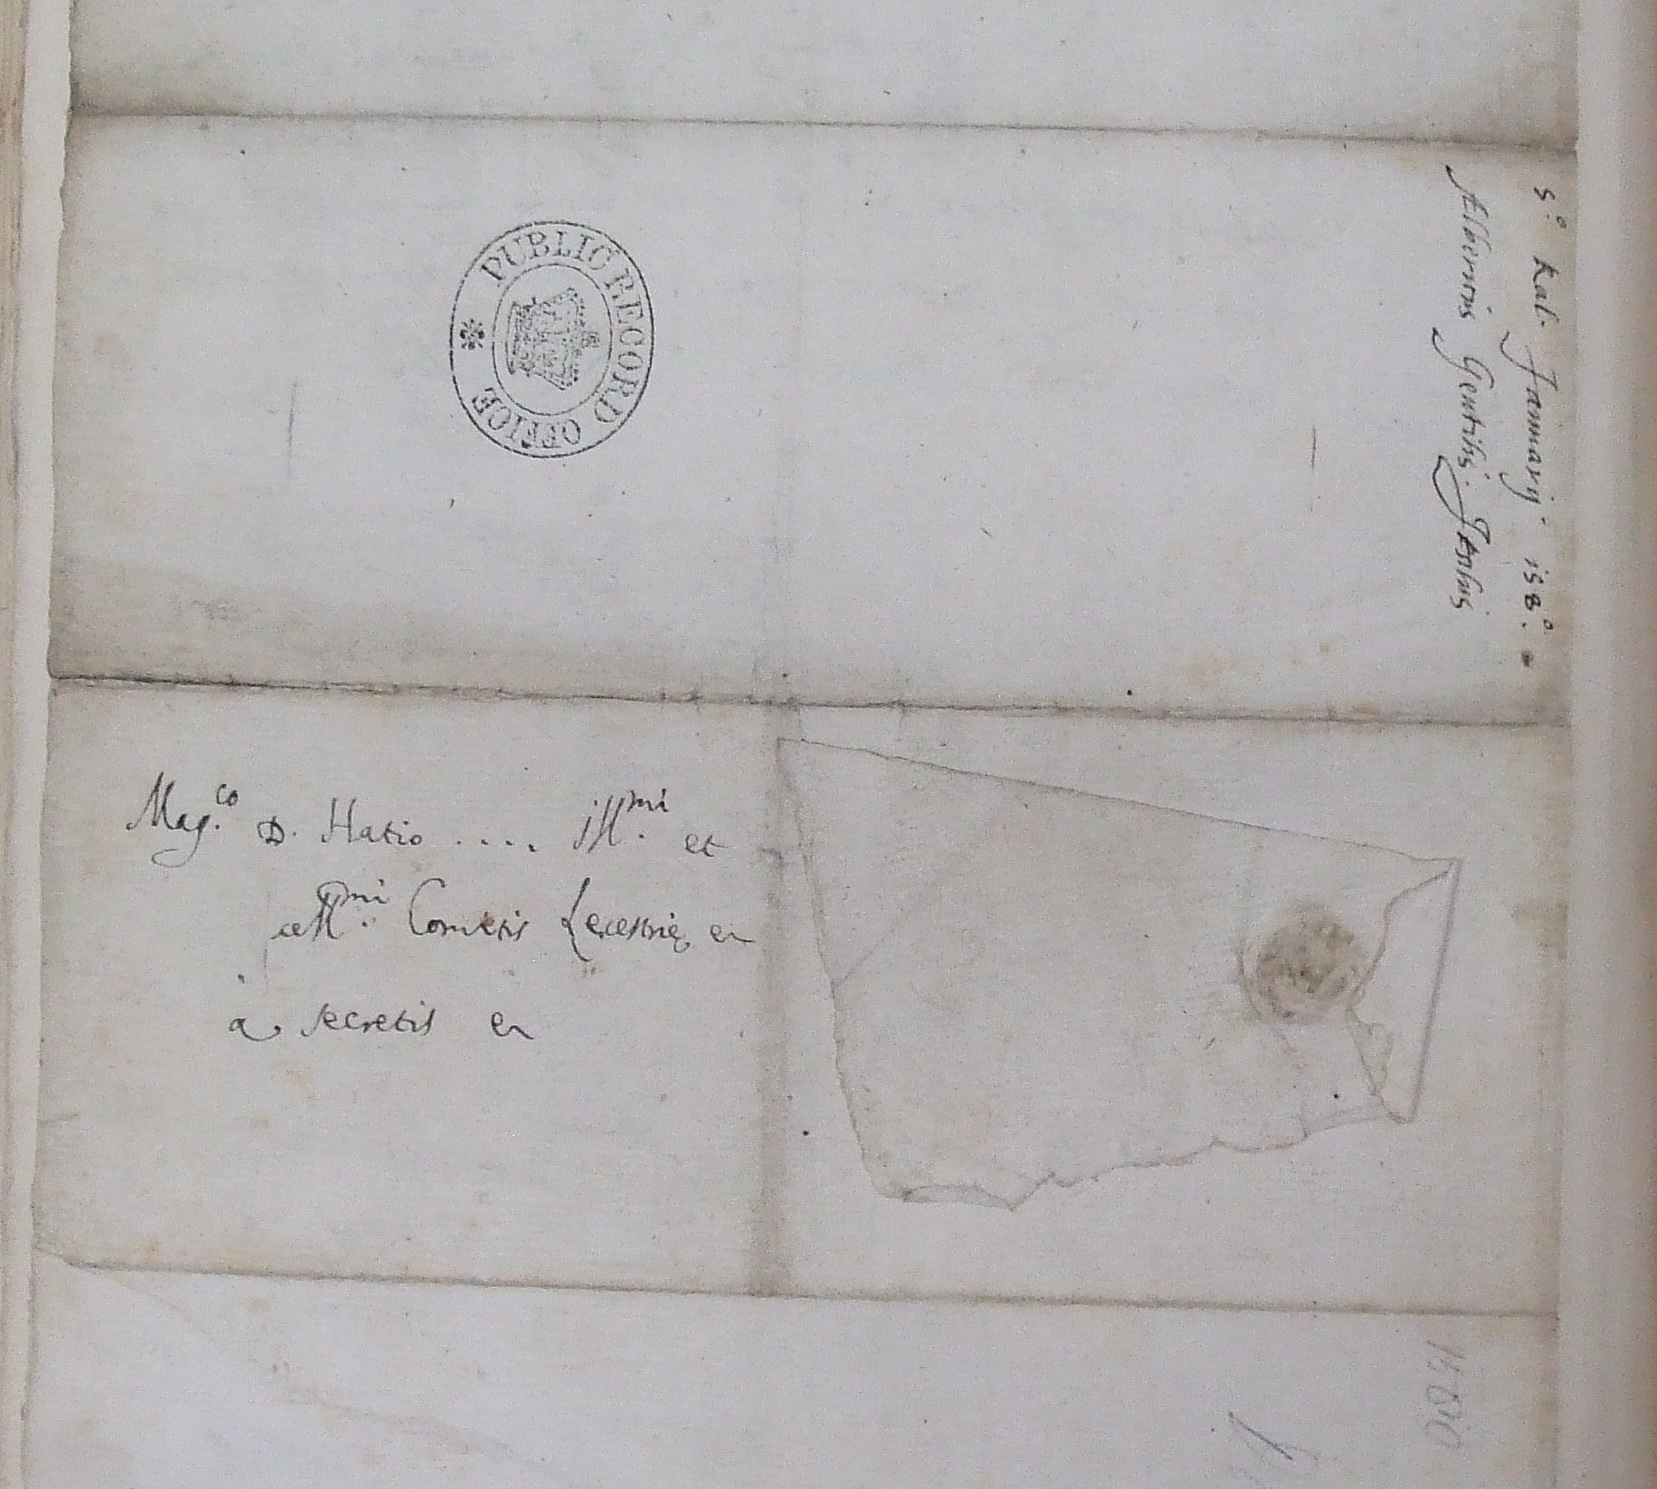 5.º Kal. Januarij. 158º.
Albericus Gentilis. Italus
PUBLIC RECORD OFFICE
Mag.co D. Hatio .... Ill.mi et
Ex.mi Comitis Lecestrię et
à secretis et
1580